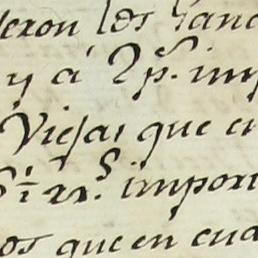 eron los Gana
y á 2 ps. imp
Viejas que en
rrs. impor
os que en cua